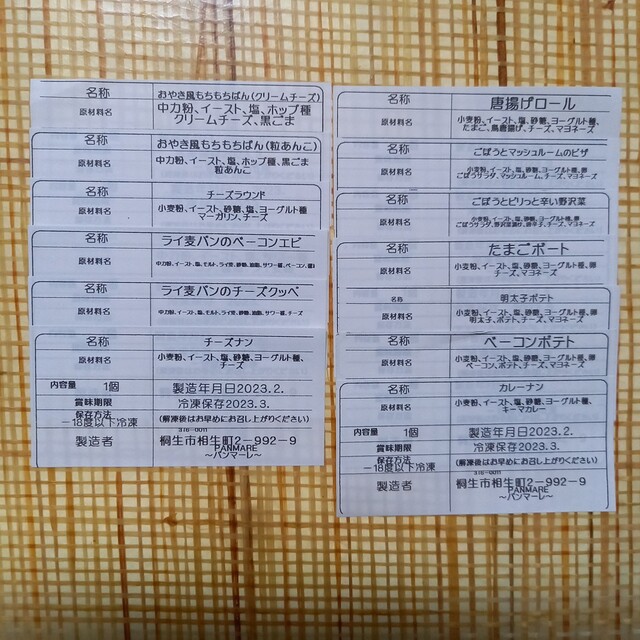 名称 おやき風もちもちぱん(クリームチーズ)
原材料名 中力粉、イースト、塩、ホップ種
クリームチーズ、黒ごま
名称 おやき風もちもちぱん(粒あんこ)
原材料名 中力粉、イースト、塩、ホップ種、黒ごま
粒あんこ
名称 チーズラウンド
原材料名 小麦粉、イースト、砂糖、塩、ヨーグルト種
マーガリン、チーズ
名称 ライ麦パンのベーコンエピ
原材料名 中力粉、イースト、塩、モルト、ライ麦、砂糖、油脂、サワー種、ベーコン、
名称 ライ麦パンのチーズクッペ
原材料名 中力粉、イースト、塩、モルト、ライ麦、砂糖、油脂、サワー種、チーズ
名称 チーズナン
原材料名 小麦粉、イースト、塩、砂糖、ヨーグルト種、
チーズ
内容量 1個 製造年月日2023.2.
賞味期限 冷凍保存2023.3.
保存方法
-18度以下冷凍 (解凍後はお早めにお召し上がりください)
376-0011
製造者 桐生市相生町2-992-9
PANMARE
~パンマーレ~
名称 唐揚げロール
原材料名 小麦粉、イースト、塩、砂糖、ヨーグルト種、
たまご、鳥唐揚げ、チーズ、マヨネーズ
名称 ごぼうとマッシュルームのピザ
原材料名 小麦粉、イースト、塩、砂糖、ヨーグルト種、卵
ごぼうサラダ、マッシュルーム、チーズ、マヨネーズ
名称 ごぼうとピリっと辛い野沢菜
原材料名 小麦粉、イースト、塩、砂糖、ヨーグルト種、卵
ごぼうサラダ、野沢菜油炒、唐辛子、チーズ、マヨネーズ
名称 たまごボート
原材料名 小麦粉、イースト、塩、砂糖、ヨーグルト種、卵
チーズ、マヨネーズ
名称 明太子ポテト
原材料名 小麦粉、イースト、塩、砂糖、ヨーグルト種、卵
明太子、ポテト、チーズ、マヨネーズ
名称 ベーコンポテト
原材料名 小麦粉、イースト、塩、砂糖、ヨーグルト種、卵
ベーコン、ポテト、チーズ、マヨネーズ
名称 カレーナン
原材料名 小麦粉、イースト、塩、砂糖、ヨーグルト種、
キーマカレー
内容量 1個 製造年月日2023.2.
賞味期限 冷凍保存2023.3.
保存方法
-18度以下冷凍 (解凍後はお早めにお召し上がりください)
376-0011
製造者 桐生市相生町2-992-9
PANMARE
~パンマーレ~